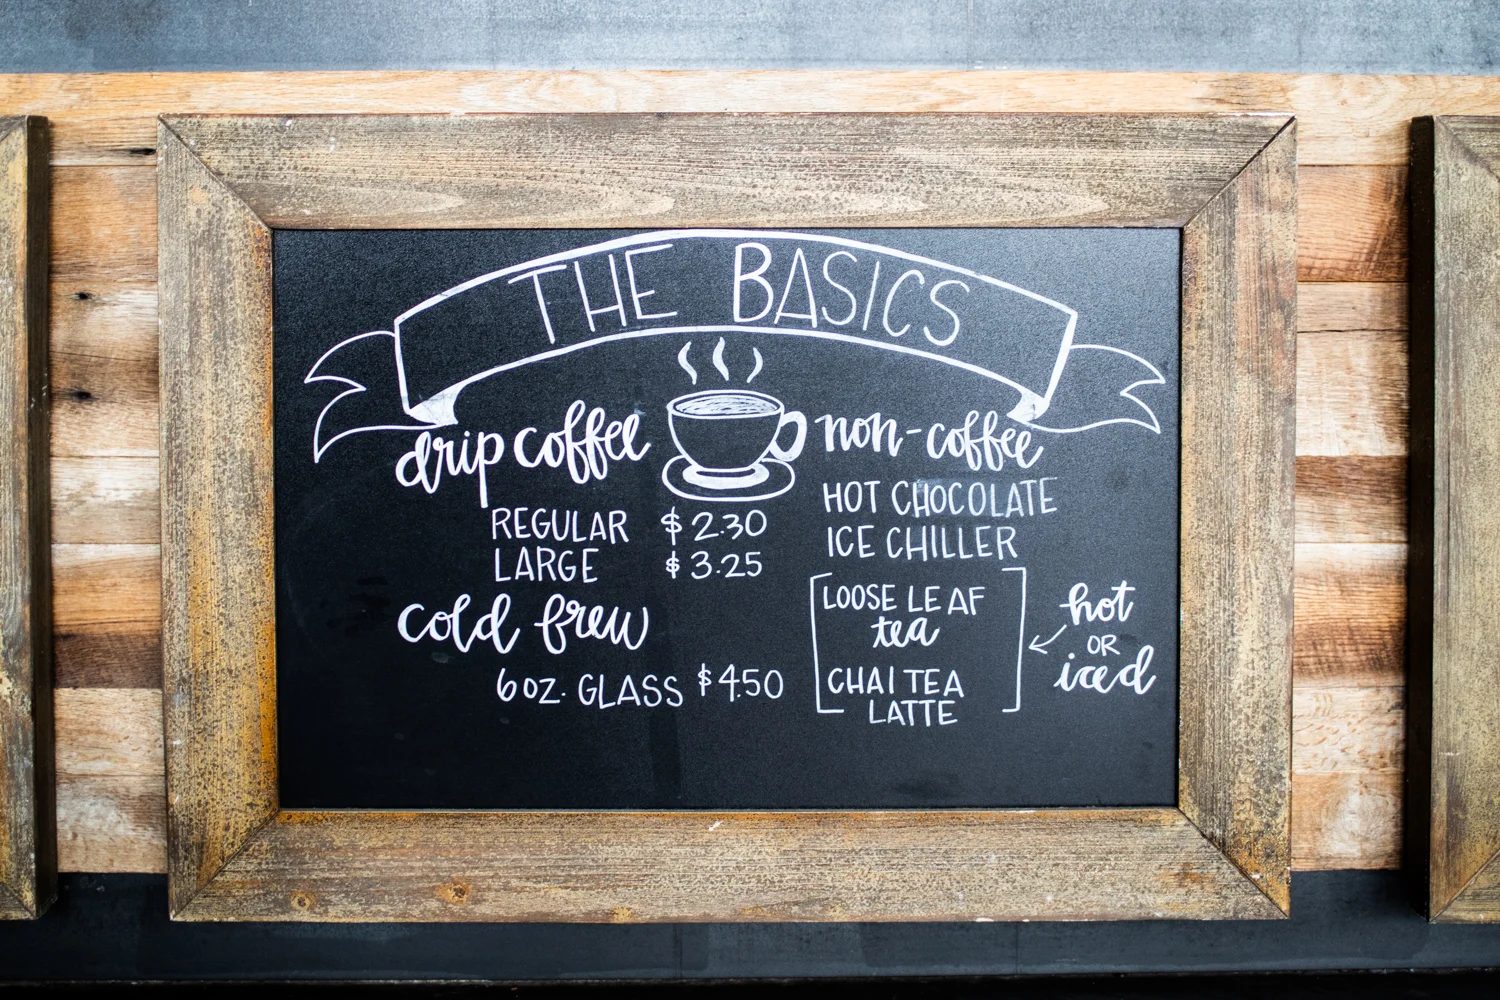 THE BASICS
drip coffee
REGULAR $2.30
LARGE $3.25
cold brew
6 OZ. GLASS $4.50
non-coffee
HOT CHOCOLATE
ICE CHILLER
LOOSE LEAF
tea
CHAI TEA
LATTE
hot
OR
iced